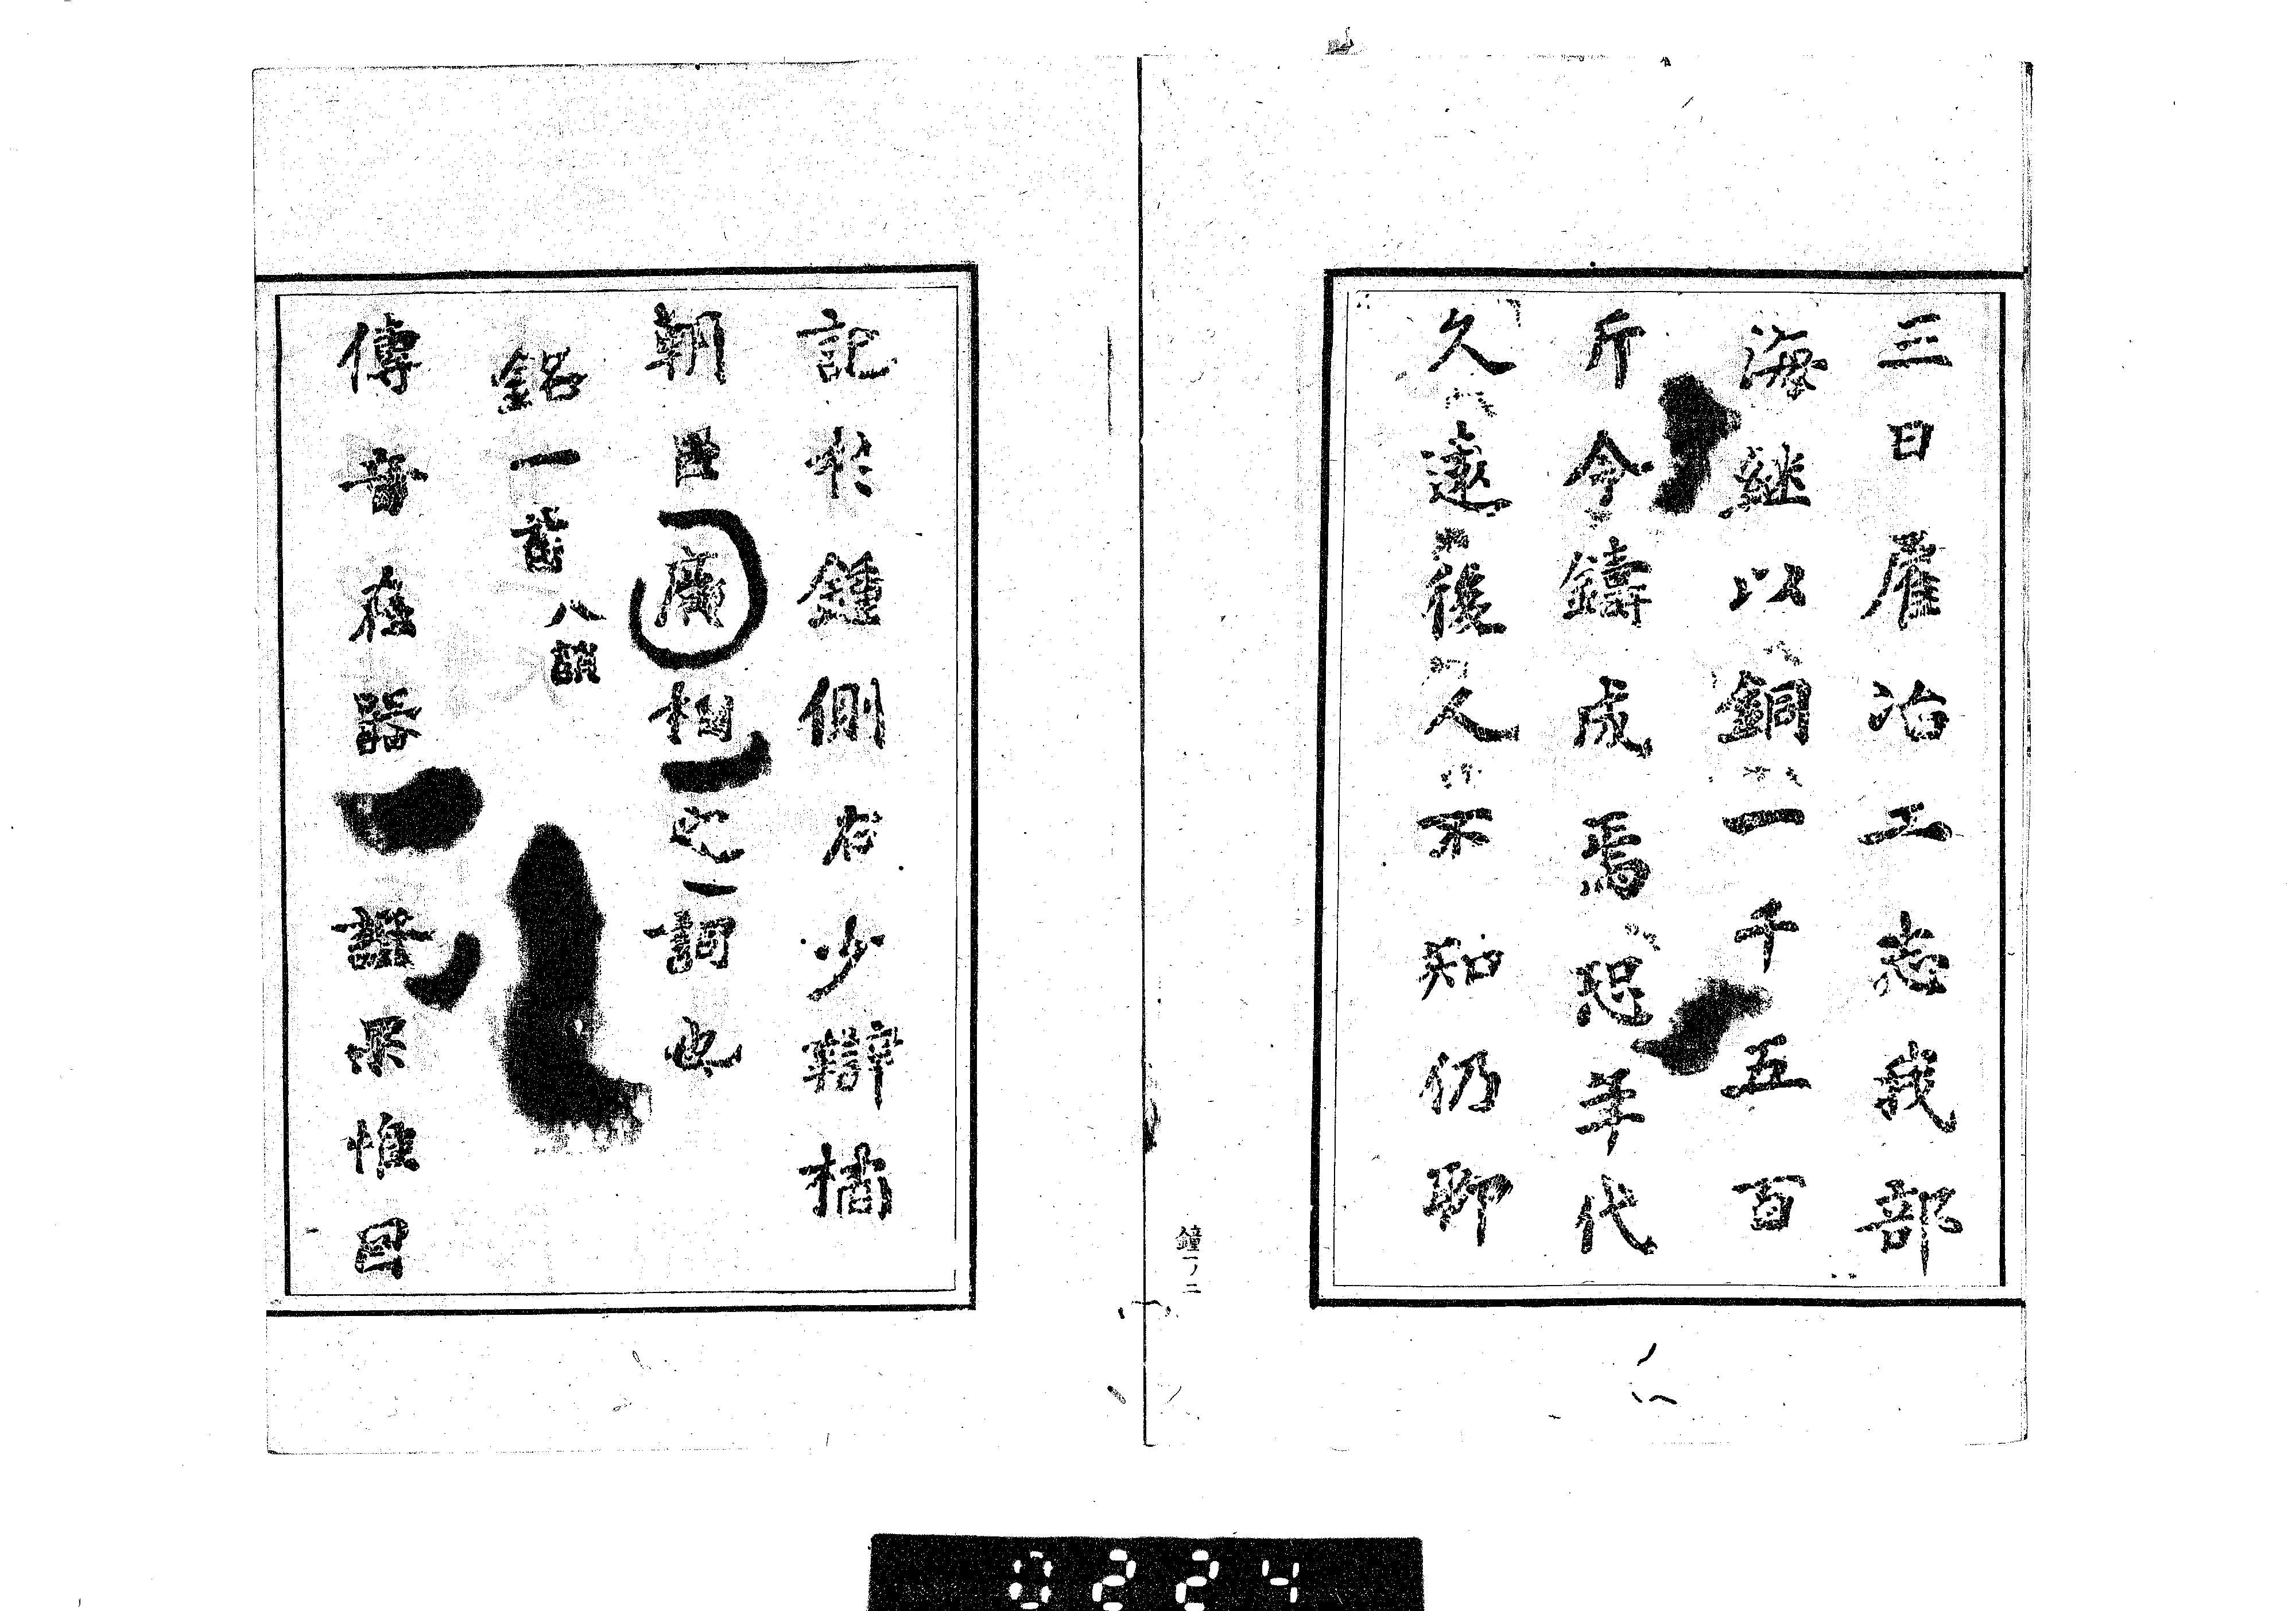 三日雇冶工志我部
海継以銅一千五百
斤令鋳成焉恐年代
久遠後人不知仍聊
鐘一ノ二
記於鍾側右少辯橘
朝臣廣相之詞也
銘一首八韻
傳音在器證果惟因
0224